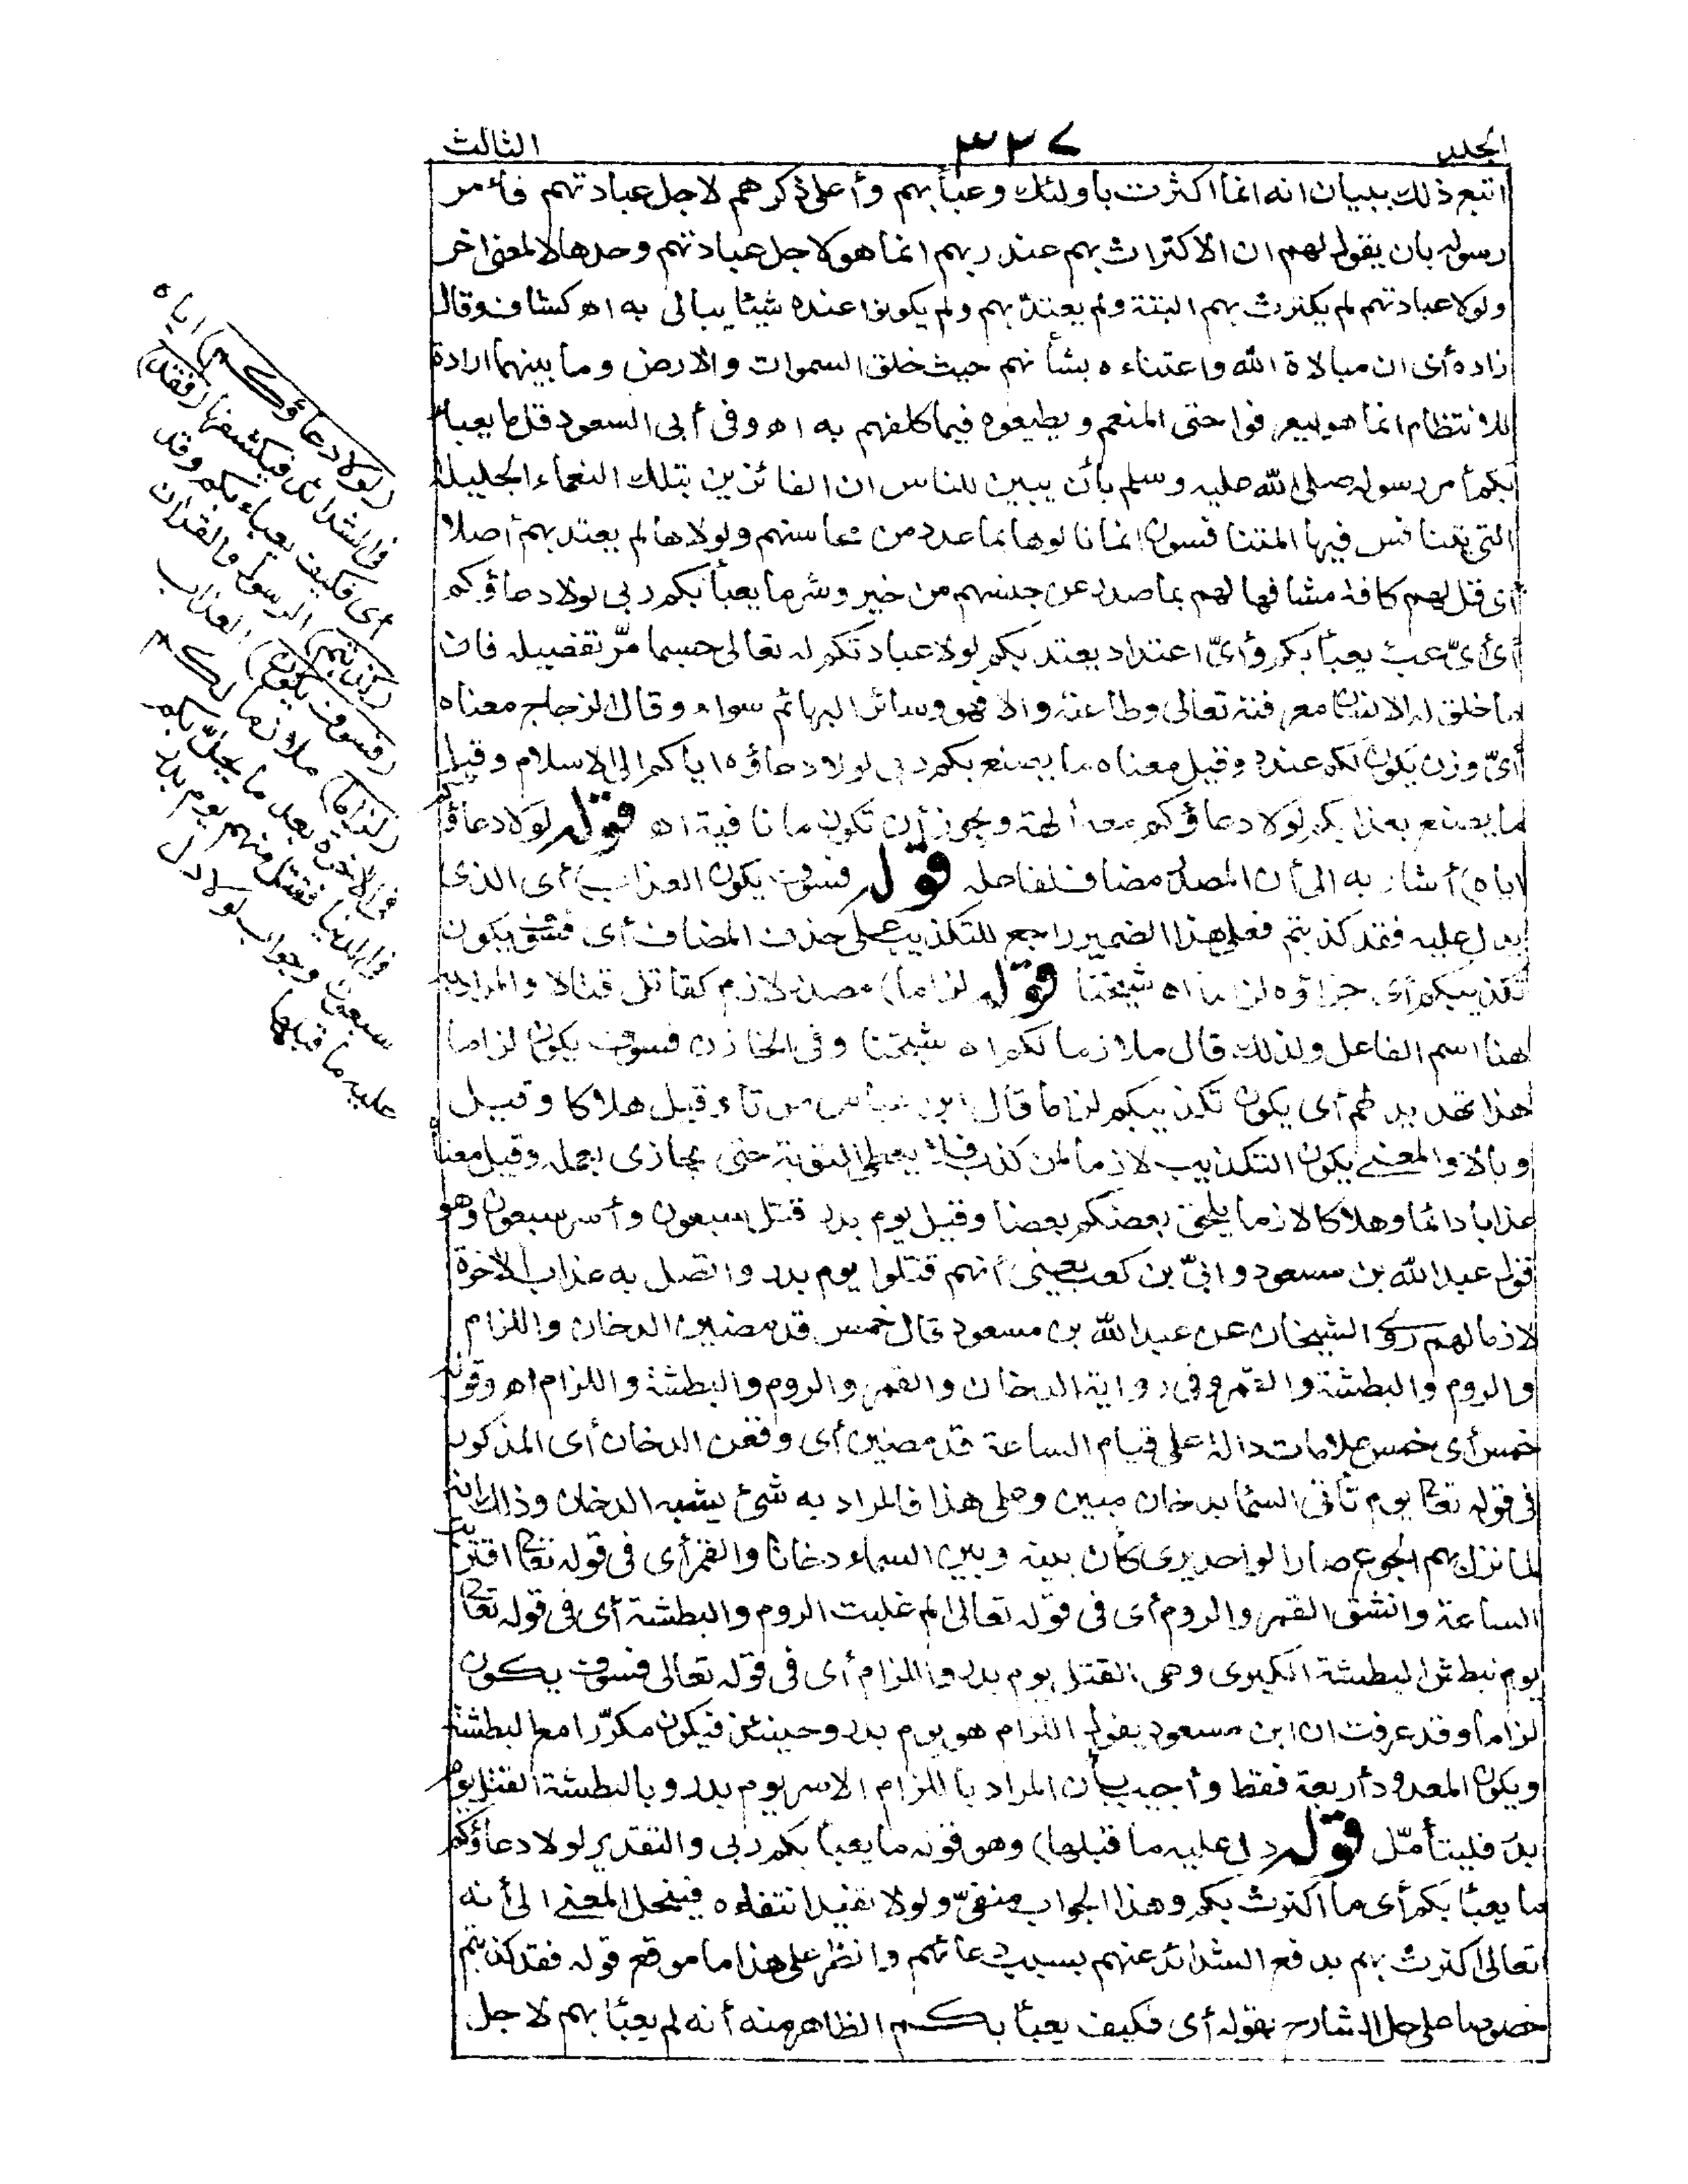 الجلد ٣٢٧ الثالث
اتبع ذلك ببيان انه انما اكثرت باولئك وعبأ بهم وأعلى ذكرهم لاجل عبادتهم فأمر
رسوله بان يقول لهم ان الاكتراث بهم عند ربهم انما هو لاجل عبادتهم وحدها لا لمعنى اخر
ولولا عبادتهم لم يكترث بهم البتة ولم يعتدّ بهم ولم يكونوا عنده شيئا يبالى به اه كشاف وقال
زاده أى ان مبالاة الله واعتناءه بشأنهم حيث خلق السموات والارض وما بينهما ارادة
للانتظام انما هو ليعرفوا حق المنعم و يطيعوه فيما كلفهم به اه وفى أبى السعود قل ما يعبأ
بكم أمر رسوله صلى الله عليه وسلم بأن يبين للناس ان الفائزين بتلك النعماء الجليلة
التى يتنافس فيها المتنافسون انما نالوها بما عدد من محاسنهم ولولاها لم يعتد بهم أصلا
أى قل لهم كافة مشافها لهم بما صدر عن جنسهم من خير وشر ما يعبأ بكم ربى لولا دعاؤكم
أى أىّ عبء يعبأ بكم وأىّ اعتداد يعتد بكم لولا عبادتكم له تعالى حسبما مرّ تفصيله فان
ما خلق له الانسان معرفته تعالى وطاعته والا فهو وسائر البهائم سواء وقال الزجاج معناه
أىّ وزن يكون لكم عنده وقيل معناه ما يصنع بكم ربى لولا دعاؤه اياكم الى الاسلام وقيل
ما يصنع بعذابكم لولا دعاؤكم معه ألهة ويجوز أن تكون ما نافية اه قوله لولا دعاؤكم
اياه) أشار به الى أن المصدر مضاف لفاعله قوله فسوف يكون العذاب) أى الذى
يدل عليه فقد كذبتم فعلى هذا الضمير راجع للتكذيب على حذف المضاف أى فسوف يكون
تكذيبكم أى جزاؤه لزاما اه شيخنا قوله لزاما) مصدر لازم كقاتل قتالا والمراد به
هنا اسم الفاعل ولذلك قال ملازما لكم اه شيخنا وفى الخازن فسوف يكون لزاما
هذا تهديد لهم أى يكون تكذيبكم لزاما قال ابن عباس موتاء وقيل هلاكا وقيل
وبالا والمعنى يكون التكذيب لازما لمن كذب فلا يعطى التوبة حتى يجازى بعمله وقيل معناه
عذابا دائما وهلاكا لازما يلحق بعضكم بعضا وقيل يوم بدر قتل سبعون وأسر سبعون وهو
قول عبد الله بن مسعود وابىّ بن كعب يعنى أنهم قتلوا يوم بدر واتصل به عذاب الآخرة
لازما لهم روى الشيخان عن عبد الله بن مسعود قال خمس قد مضين الدخان واللزام
والروم والبطشة والقمر وفى رواية الدخان والقمر والروم والبطشة واللزام اه وقوله
خمس أى خمس علامات دالة على قيام الساعة قد مضين أى وقعن الدخان أى المذكور
فى قوله تعالى يوم تأتى السماء بدخان مبين وعلى هذا فالمراد به شئ يشبه الدخان وذلك انه
لما نزل بهم الجوع صار الواحد يرى كأن بينه وبين السماء دخانا والقمر أى فى قوله تعالى اقتربت
الساعة وانشق القمر والروم أى فى قوله تعالى الم غلبت الروم والبطشة أى فى قوله تعالى
يوم نبطش البطشة الكبرى وهى القتل يوم بدر واللزام أى فى قوله تعالى فسوف يكون
لزاما وقد عرفت ان ابن مسعود يقول اللزام هو يوم بدر وحينئذ فيكون مكرّرا مع البطشة
ويكون المعدود أربعة فقط وأجيب بأن المراد باللزام الاسر يوم بدر وبالبطشة القتل يوم
بدر فليتأمّل قوله دل عليه ما قبلها) وهو قوله ما يعبأ بكم ربى والتقدير لولا دعاؤكم
ما يعبأ بكم أى ما اكترث بكم وهذا الجواب منفىّ ولولا تفيد انتفاءه فينحل المعنى الى أنه
تعالى اكترث بهم بدفع الشدائد عنهم بسبب دعائهم وانظر على هذا ما موقع قوله فقد كذبتم
خصوصا على حل الشارح بقوله أى فكيف يعبأ بكم الظاهر منه أنه لم يعبأ بهم لاجل
(لولا دعاؤكم) اياه
فى الشدائد فيكشفها (فقد)
أى فكيف يعباء بكم وقد
(كذبتم) الرسول والقران
(فسوف يكون) العذاب
(لزاما) ملازما لكم
فى الاخرة بعد ما يحلّ بكم
فى الدنيا فقتل منهم يوم بدر
سبعون وجواب لولا دل
عليه ما قبلها